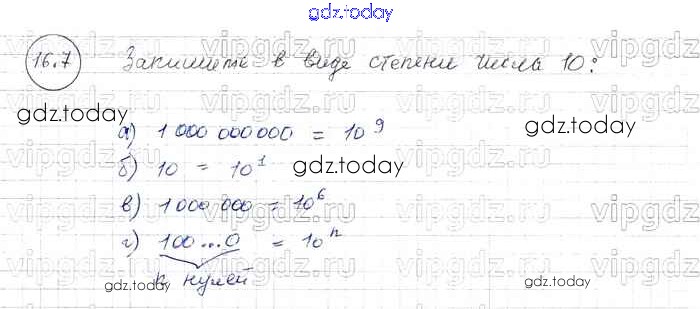 gdz.today
16.7 Запишите в виде степени числа 10:
gdz.today
gdz.today
а) 1 000 000 000 = 10⁹
б) 10 = 10¹
gdz.today
в) 1 000 000 = 10⁶
г) 100...0 = 10ⁿ
к нулей
gdz.today
gdz.today
vipgdz